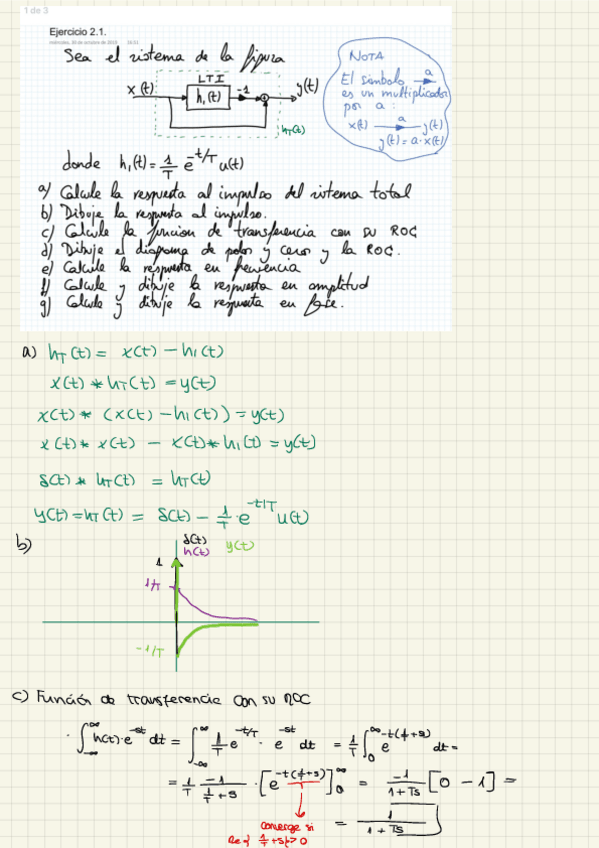 1 de 3
Ejercicio 2.1.
Sea el sistema de la figura
x(t) LTI h₁(t) -1 + y(t)
h_T(t)
NOTA
El símbolo a →
es un multiplicador
por a:
x(t) —a→ y(t)
y(t)=a·x(t)
donde h₁(t)=1/T e^(-t/T) u(t)
a) Calcule la respuesta al impulso del sistema total
b) Dibuje la respuesta al impulso.
c) Calcule la función de transferencia con su ROC
d) Dibuje el diagrama de polos y ceros y la ROC.
e) Calcule la respuesta en frecuencia
f) Calcule y dibuje la respuesta en amplitud
g) Calcule y dibuje la respuesta en fase.
a) h_T(t) = x(t) - h₁(t)
x(t) * h_T(t) = y(t)
x(t) * (x(t) - h₁(t)) = y(t)
x(t) * x(t) - x(t) * h₁(t) = y(t)
δ(t) * h_T(t) = h_T(t)
y(t) = h_T(t) = δ(t) - 1/T · e^(-t/T) u(t)
b)
δ(t)
h(t) y(t)
1
1/T
-1/T
c) Función de transferencia con su ROC
· ∫_{-∞}^{∞} h(t)·e^(-st) dt = ∫_{-∞}^{∞} 1/T e^(-t/T) · e^(-st) dt = 1/T ∫_0^∞ e^(-t(1/T+s)) dt =
= 1/T · -1/(1/T+s) · [e^(-t(1/T+s))]_0^∞ = -1/(1+Ts) [0-1] =
= 1/(1+Ts)
converge si
Re{1/T+s}>0